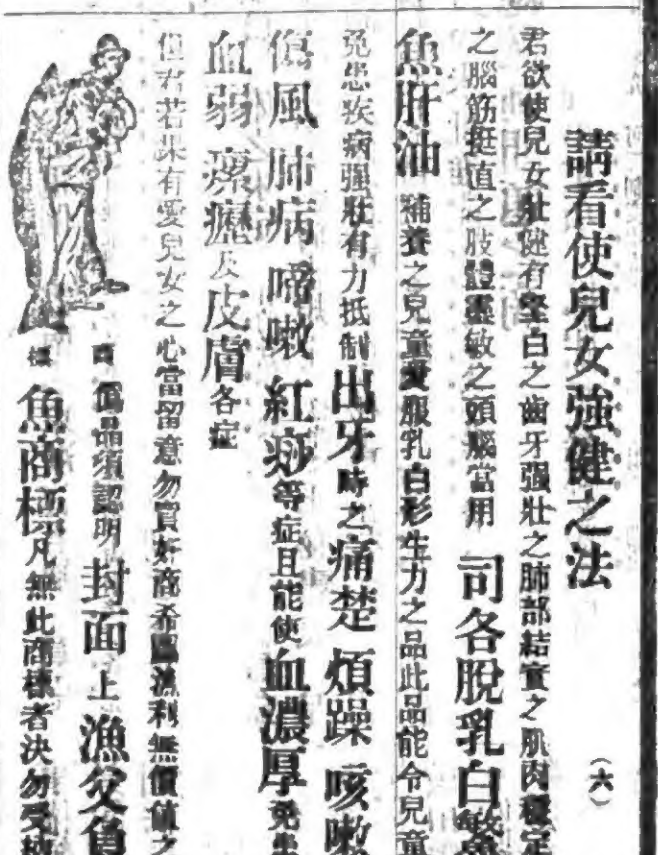 請看使兒女強健之法
（六）
君欲使兒女壯健有堅白之齒牙强壯之肺部結實之肌肉穩定
之腦筋挺直之肢體靈敏之頭腦當用 司各脫乳白鰵
魚肝油 補養之兒童愛服乳白形生力之品此品能令兒童
免患疾病强壯有力抵制 出牙時之痛楚 煩躁 咳嗽
傷風 肺病 喑嗽 紅痧等症且能使 血濃厚 免患
血弱 瘰癧及皮膚各症
但君若果有愛兒女之心當留意勿買奸商希圖漁利無價值之
商 僞品須認明 封面上 漁父負
標 魚商標凡無此商標者決勿受